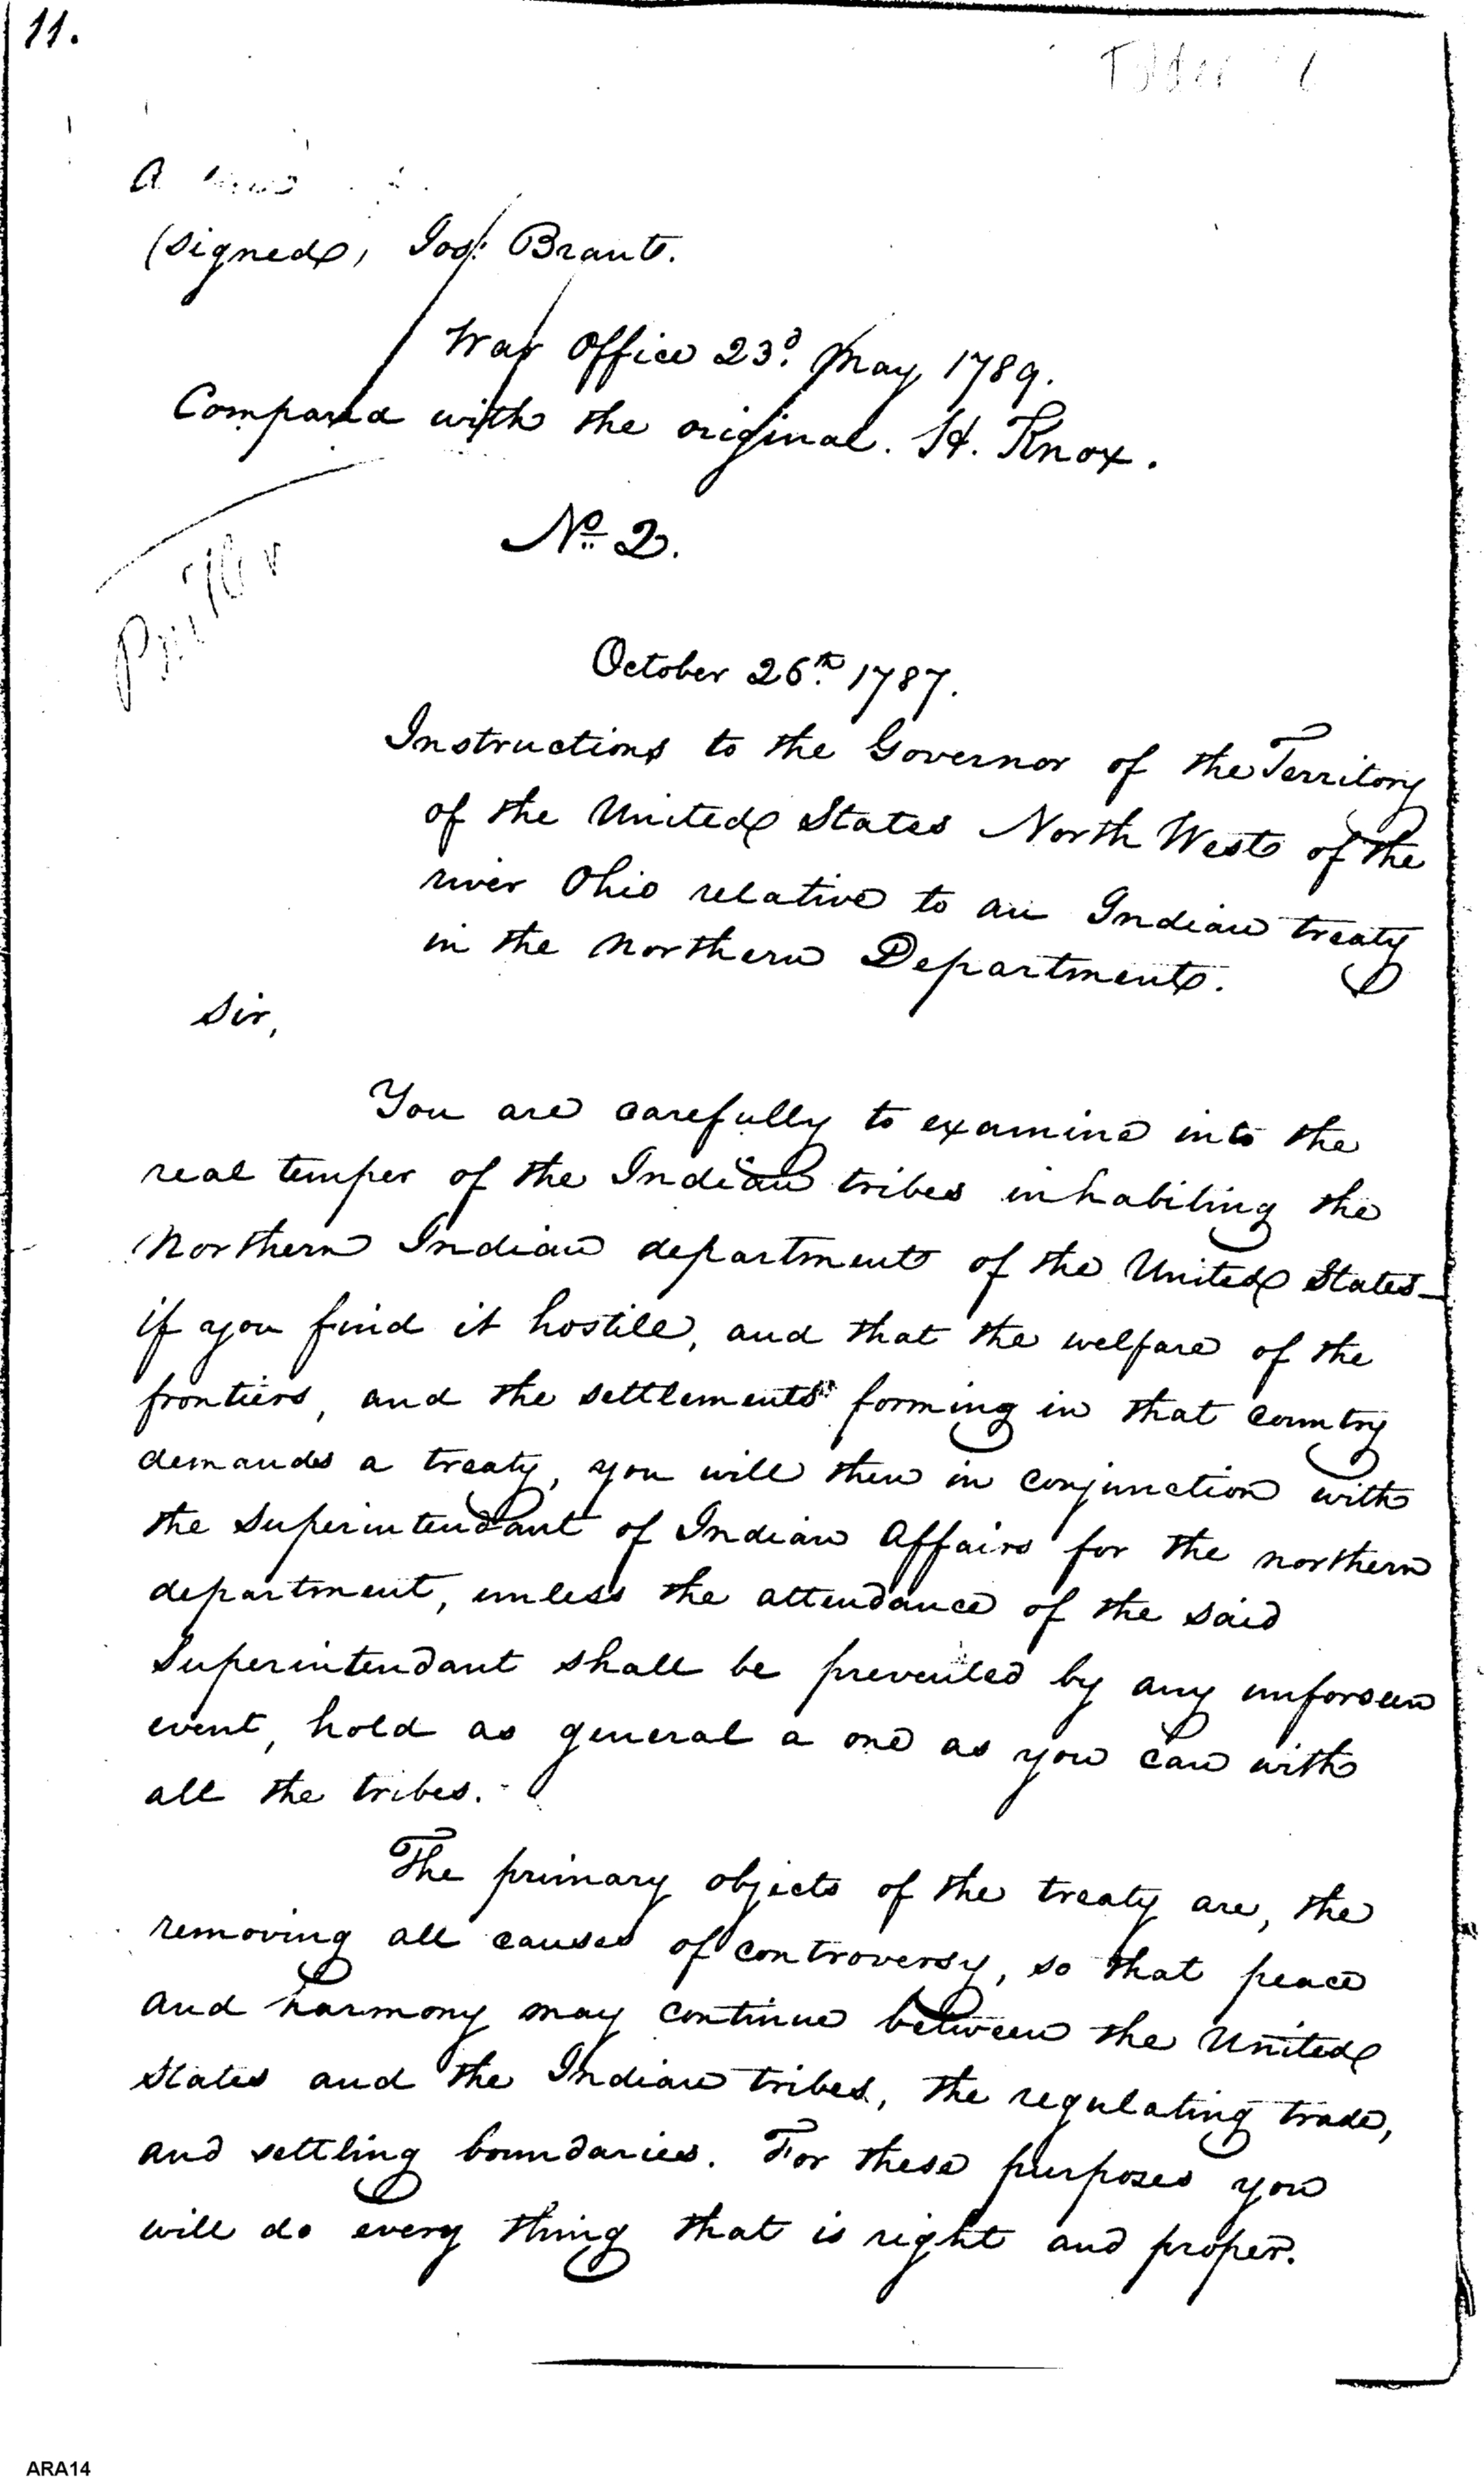 11.
Folder
A
(signed) Jos: Brant.
War Office 23d. May 1789.
Compared with the original. H. Knox.
No. 2.
Printer
October 26th. 1787.
Instructions to the Governor of the Territory
of the United States North West of the
river Ohio relative to an Indian treaty
in the Northern Department.
Sir,
You are carefully to examine into the
real temper of the Indian tribes inhabiting the
Northern Indian department of the United States—
if you find it hostile, and that the welfare of the
frontiers, and the settlements forming in that country
demands a treaty, you will then in conjunction with
the Superintendant of Indian Affairs for the northern
department, unless the attendance of the said
Superintendant shall be prevented by any unforseen
event, hold as general a one as you can with
all the tribes.
The primary objects of the treaty are, the
removing all causes of controversy, so that peace
and harmony may continue between the United
States and the Indian tribes, the regulating trade,
and settling boundaries. For these purposes you
will do every thing that is right and proper.
ARA14